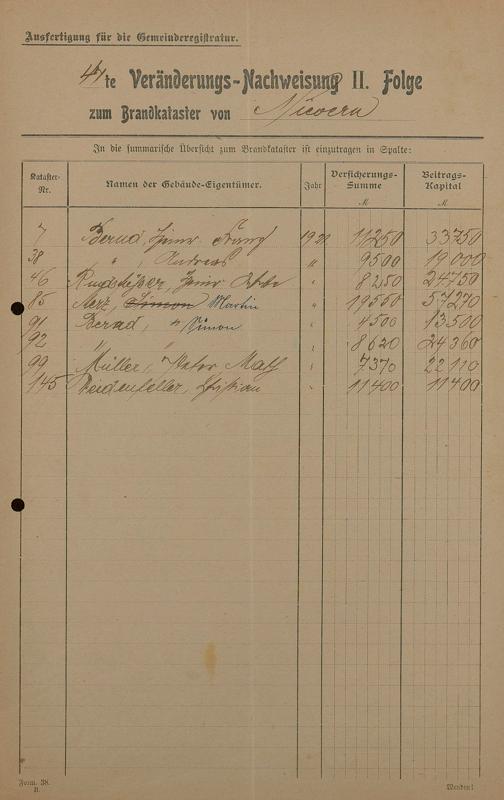 Ausfertigung für die Gemeinderegistratur.
41te Veränderungs-Nachweisung II. Folge
zum Brandkataster von Nievern
In die summarische Übersicht zum Brandkataster ist einzutragen in Spalte:
Kataster-Nr. Namen der Gebäude-Eigentümer. Jahr Versicherungs-Summe M Beitrags-Kapital M
7 Bernd, Heinr. Franz 1921 11250 33750
38 " , Andreas " 9500 19000
46 Heinr. " 8250 24750
85 Merz, Simon Martin " 19550 57270
91 Bernd, " Simon " 4500 13500
92 " " " 8620 24360
99 Müller, Math " 7370 22110
145 Weidenfeller, Christian " 11400 11400
Form. 38.
B.
Wenden!